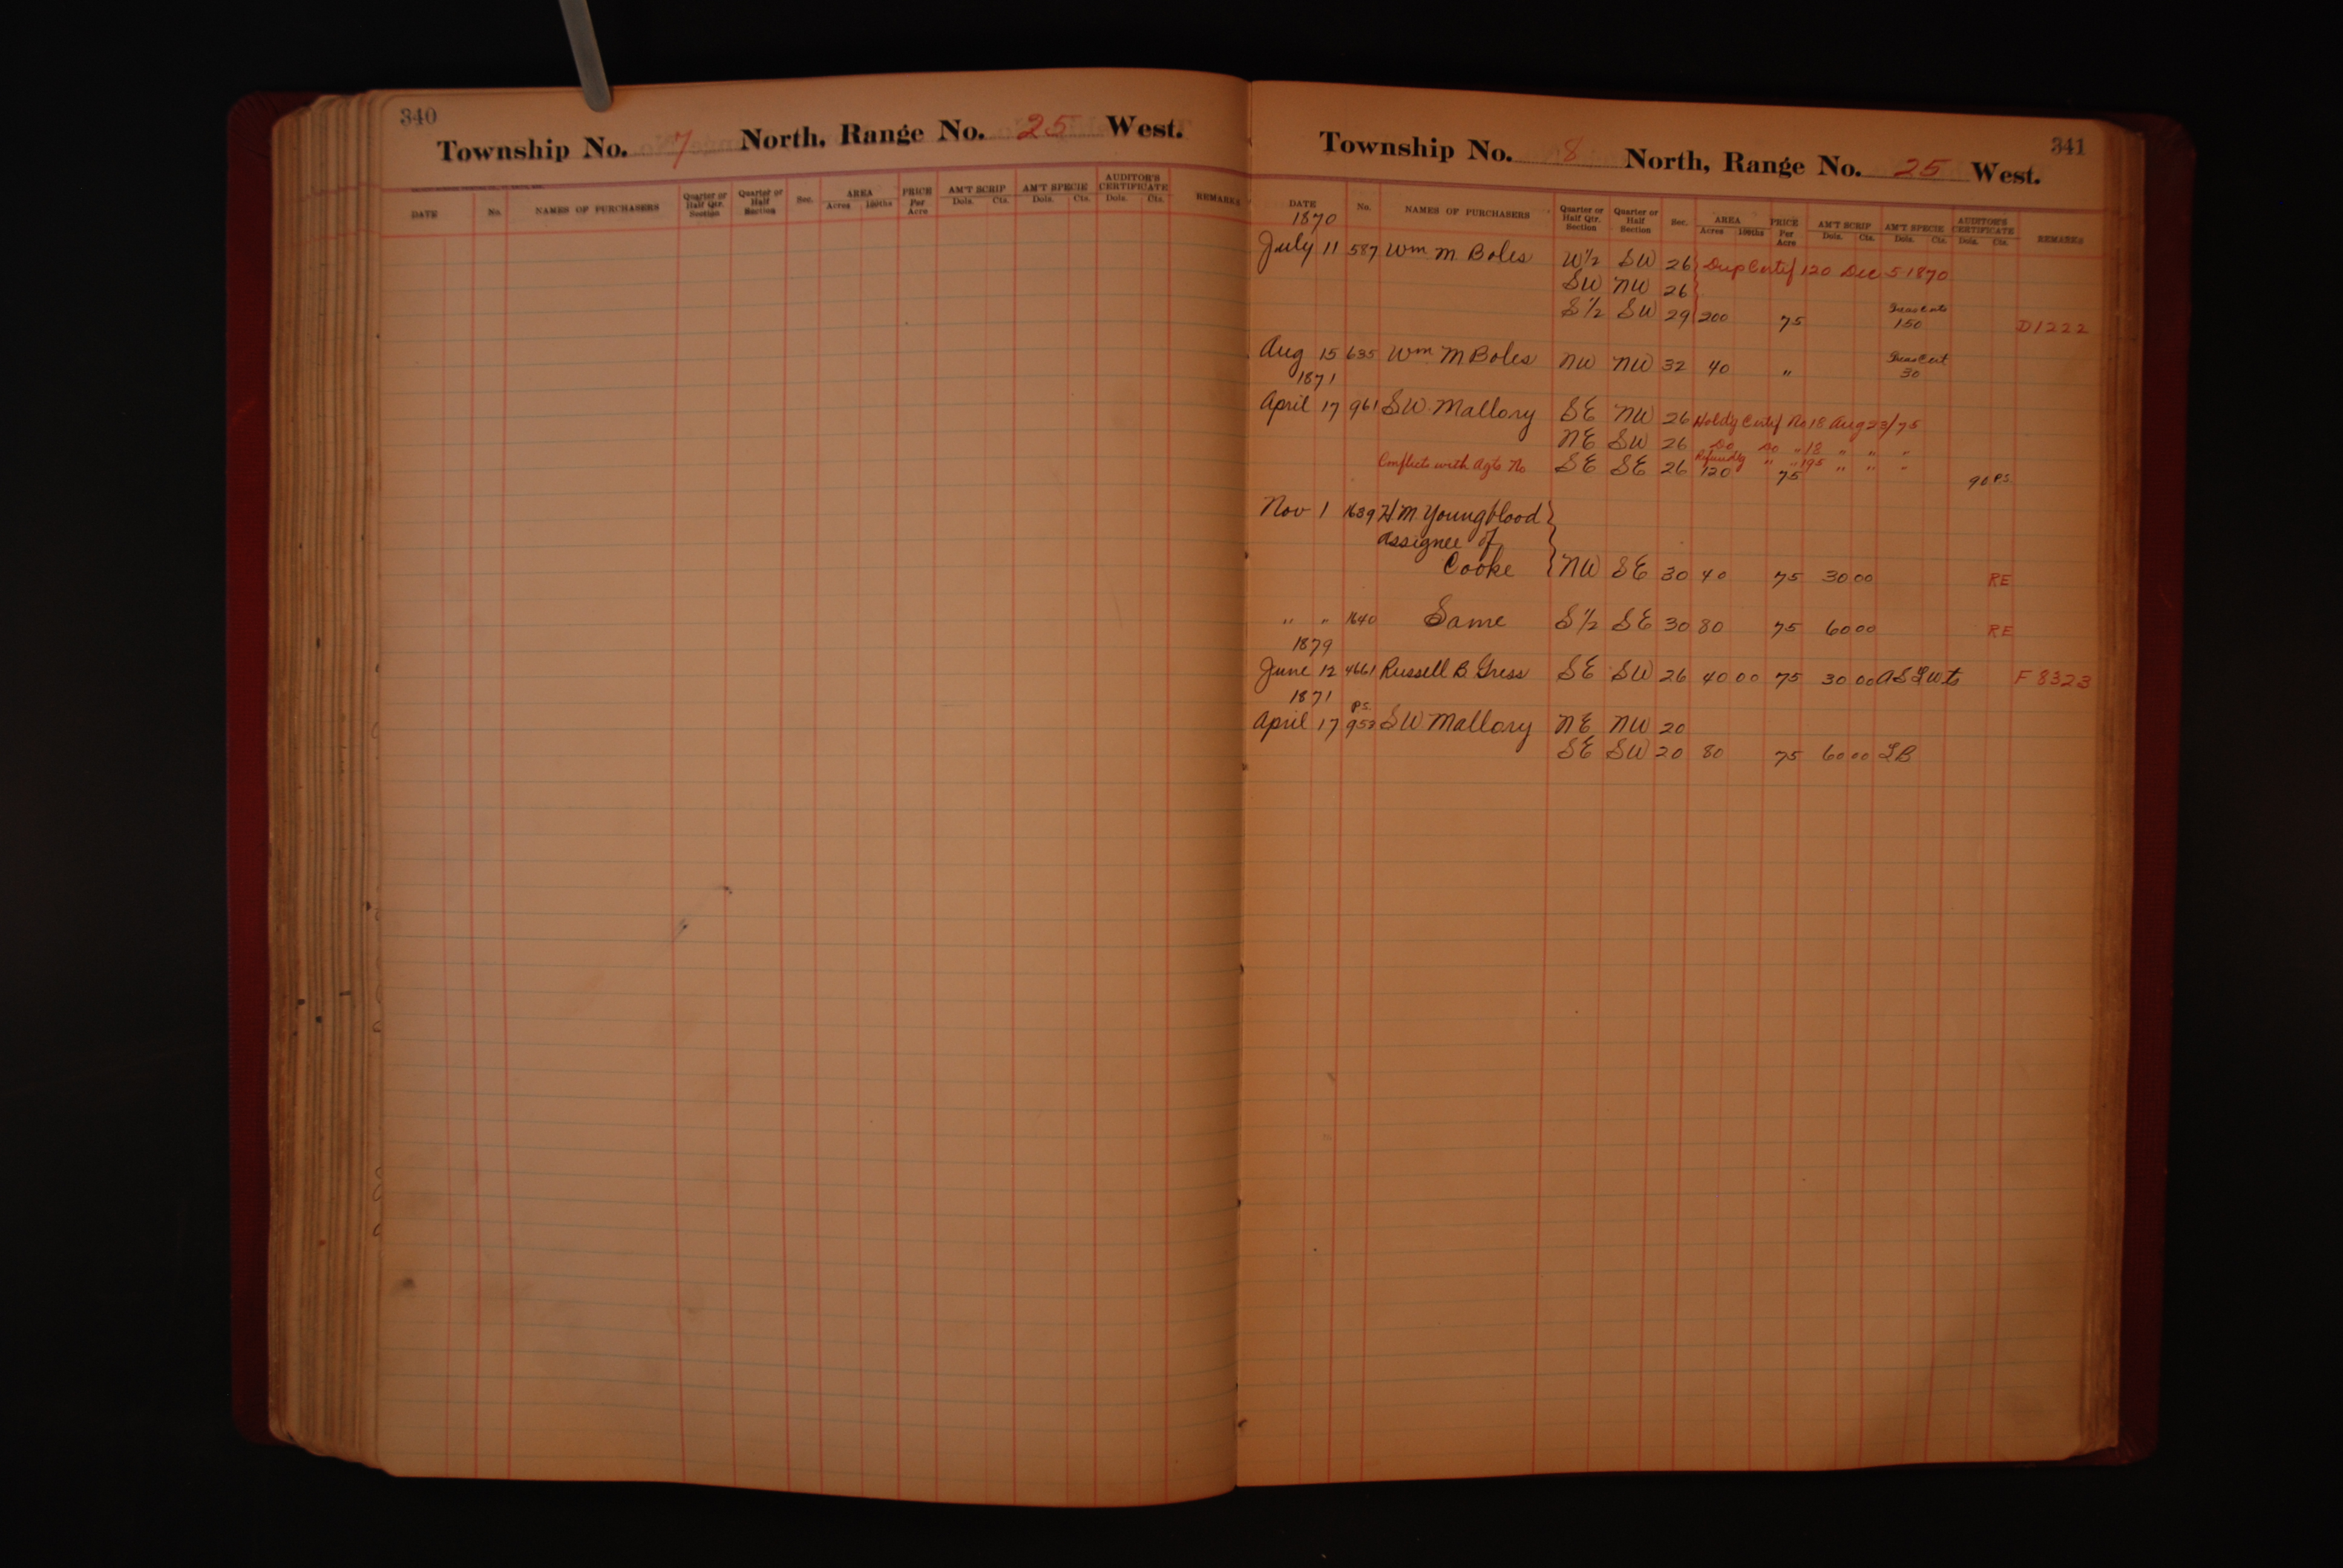 340
Township No. 7 North, Range No. 25 West.
DATE No. NAMES OF PURCHASERS Quarter or Half Qtr. Section Quarter or Half Section Sec. AREA Acres 100ths PRICE Per Acre AM'T SCRIP Dols. Cts. AM'T SPECIE Dols. Cts. AUDITOR'S CERTIFICATE Dols. Cts. REMARKS
341
Township No. 8 North, Range No. 25 West.
DATE No. NAMES OF PURCHASERS Quarter or Half Qtr. Section Quarter or Half Section Sec. AREA Acres 100ths PRICE Per Acre AM'T SCRIP Dols. Cts. AM'T SPECIE Dols. Cts. AUDITOR'S CERTIFICATE Dols. Cts. REMARKS
1870
July 11 587 Wm M. Boles W½ SW 26 Dup Certif 120 Dec 5 1870
SW NW 26
S½ SW 29 200 75 150 D1222
Aug 15 635 Wm M Boles NW NW 32 40 " Treas Cert 30
1871
April 17 961 S W Mallory SE NW 26 Holdg Certif No 18 Aug 23/75
NE SW 26 Do Do " 18 " " "
Conflicts with Agts No SE SE 26 Refundg " " 195 " " "
120 75 90 P.S.
Nov 1 1639 H. M. Youngblood
assignee of
Cooke NW SE 30 40 75 30 00 RE
" " 1640 Same S½ SE 30 80 75 60 00 RE
1879
June 12 4661 Russell B. Gress SE SW 26 40 00 75 30 00 A S & W ts F 8323
1871
P.S.
April 17 953 S W Mallory NE NW 20
SE SW 20 80 75 60 00 LB